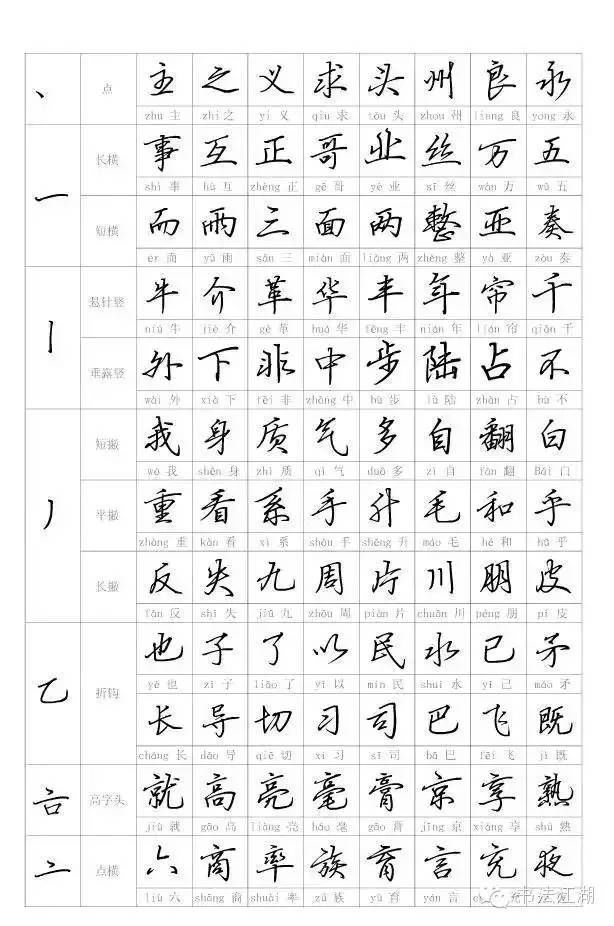 、 点 主 之 义 求 头 州 良 永
zhǔ 主 zhī 之 yì 义 qiú 求 tóu 头 zhōu 州 liáng 良 yǒng 永
一 长横 事 互 正 哥 业 丝 万 五
shì 事 hù 互 zhèng 正 gē 哥 yè 业 sī 丝 wàn 万 wǔ 五
短横 而 雨 三 面 两 整 亚 奏
ér 而 yǔ 雨 sān 三 miàn 面 liǎng 两 zhěng 整 yà 亚 zòu 奏
丨 悬针竖 牛 介 革 华 丰 年 帘 千
niú 牛 jiè 介 gé 革 huá 华 fēng 丰 nián 年 lián 帘 qiān 千
垂露竖 外 下 非 中 步 陆 占 不
wài 外 xià 下 fēi 非 zhōng 中 bù 步 lù 陆 zhān 占 bù 不
丿 短撇 我 身 质 气 多 自 翻 白
wǒ 我 shēn 身 zhì 质 qì 气 duō 多 zì 自 fān 翻 Bái
平撇 重 看 系 手 升 毛 和 乎
zhòng 重 kàn 看 xì 系 shǒu 手 shēng 升 máo 毛 hé 和 hū 乎
长撇 反 失 九 周 片 川 朋 皮
fǎn 反 shī 失 jiǔ 九 zhōu 周 piàn 片 chuān 川 péng 朋 pí 皮
乙 折钩 也 子 了 以 民 水 已 矛
yě 也 zǐ 子 liǎo 了 yǐ 以 mín 民 shuǐ 水 yǐ 已 máo 矛
长 导 切 习 司 巴 飞 既
cháng 长 dǎo 导 qiē 切 xí 习 sī 司 bā 巴 fēi 飞 jì 既
高字头 就 高 亮 毫 膏 京 享 熟
jiù 就 gāo 高 liàng 亮 háo 毫 gāo 膏 jīng 京 xiǎng 享 shú 熟
亠 点横 六 商 率 族 育 言 充 夜
liù 六 shāng 商 shuài 率 zú 族 yù 育 yán 言
书法江湖